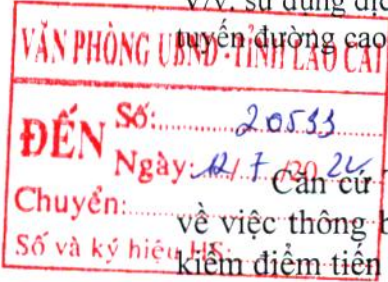 V/v. sử dụng dịc
tuyến đường cao
VĂN PHÒNG UBND TỈNH LÀO CAI
ĐẾN
Số: 20533
Ngày: 12/7/2024
Chuyển:
Số và ký hiệu HS:
Căn cứ T
về việc thông b
kiểm điểm tiến